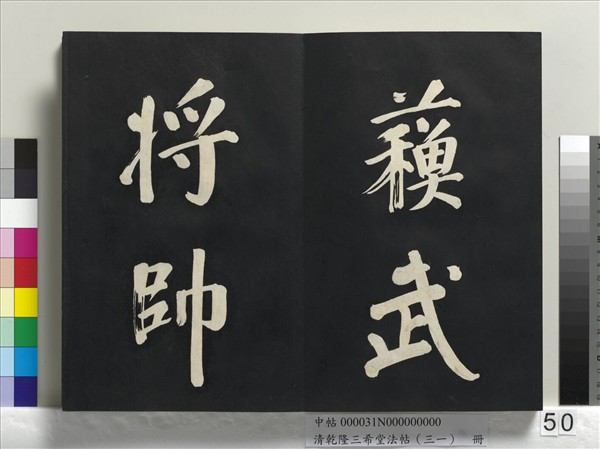 蘓武
将帥
中帖 000031N000000000
清乾隆三希堂法帖（三一） 冊
50